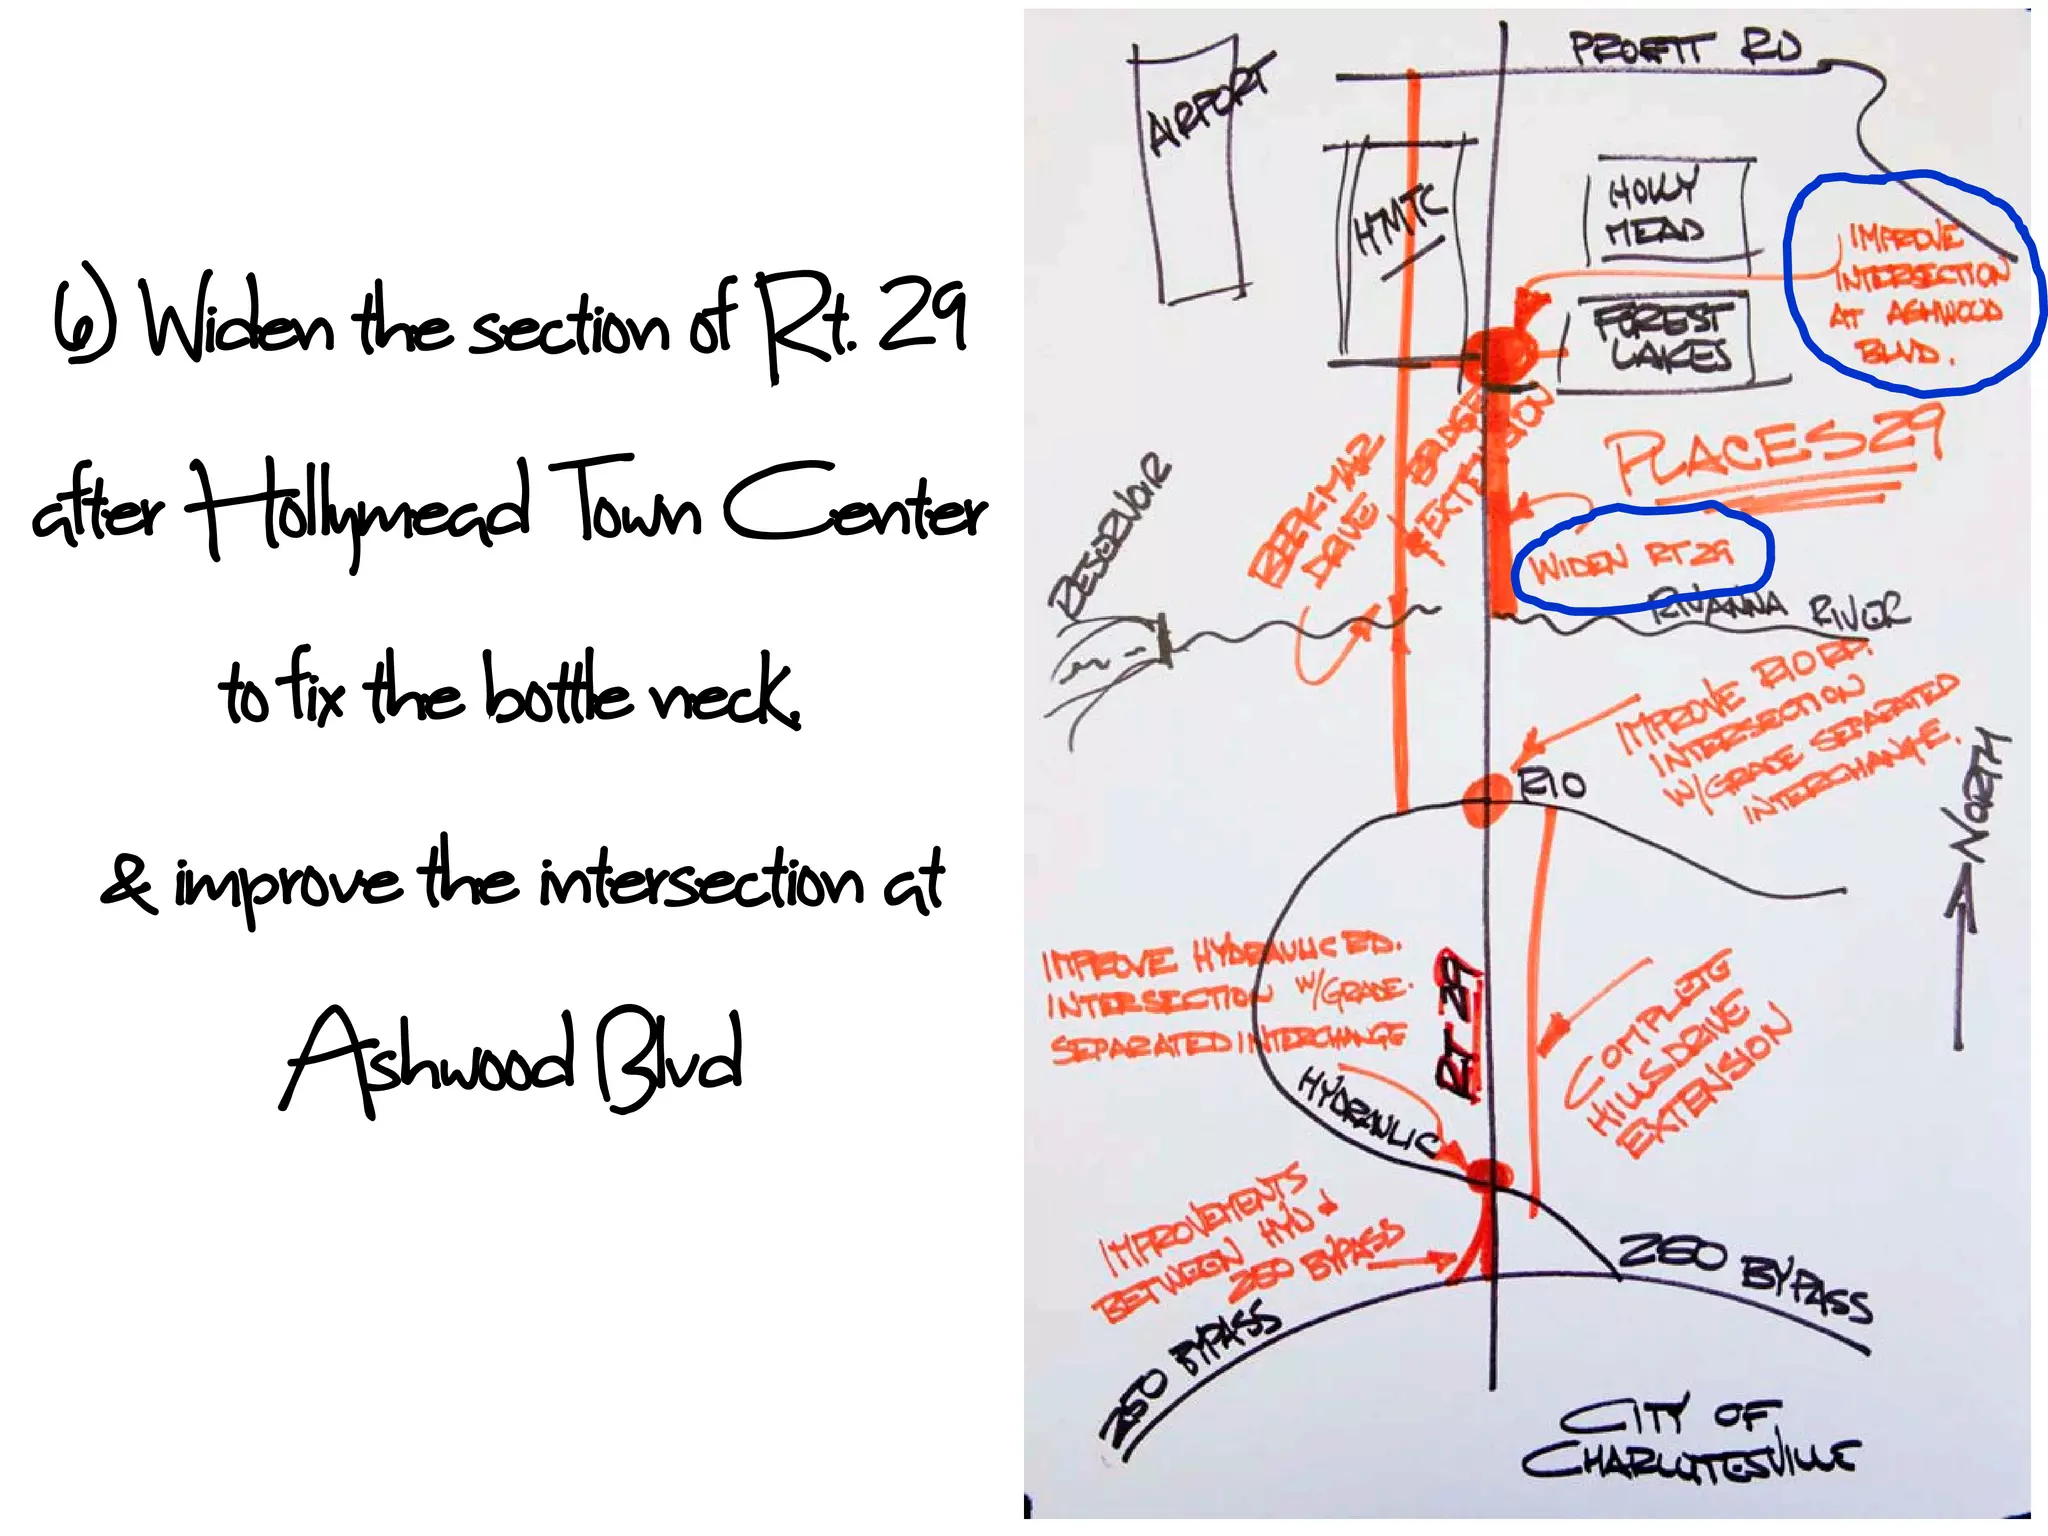 6) Widen the section of Rt. 29
after Hollymead Town Center
to fix the bottle neck.
& improve the intersection at
Ashwood Blvd
PROFFIT RD
AIRPORT
HMTC
HOLLY
MEAD
IMPROVE
INTERSECTION
AT ASHWOOD
BLVD.
FOREST
LAKES
PLACES29
BERKMAR
DRIVE
BRIDGE
& EXTENSION
RESERVOIR
WIDEN RT 29
RIVANNA RIVER
IMPROVE RIO RD.
INTERSECTION
W/GRADE SEPARATED
INTERCHANGE.
RIO
NORTH
IMPROVE HYDRAULIC RD.
INTERSECTION W/GRADE.
SEPARATED INTERCHANGE
RT 29
COMPLETE
HILLSDRIVE
EXTENSION
HYDRAULIC
IMPROVEMENTS
BETWEEN HYD &
250 BYPASS
250 BYPASS
250 BYPASS
CITY OF
CHARLOTTESVILLE